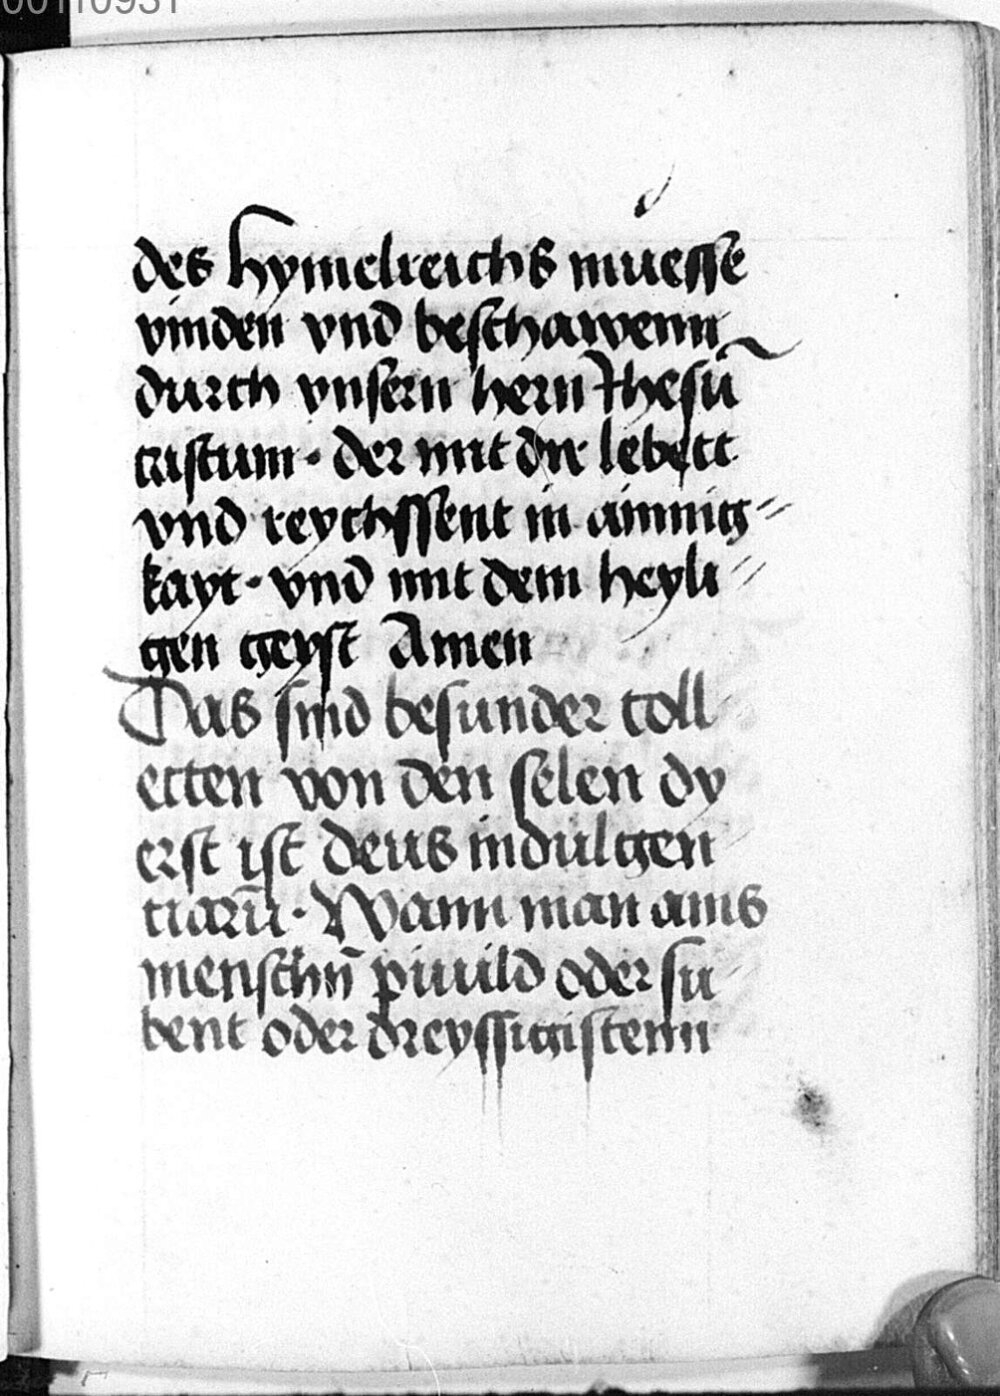 00110931
des hymelreichs muesse
vinden vnd beschawenn
durch vnsern hern Jhesū
cristum · der mit dir lebett
vnd reychssent in ainnig〃
kayt · vnd mit dem heyli〃
gen geyst Amen
Das sind besunder coll
ecten von den selen dy
erst ist deus indulgen
ciarū · Wann man ains
menschn̄ pivild oder si
bent oder dreyssigistenn